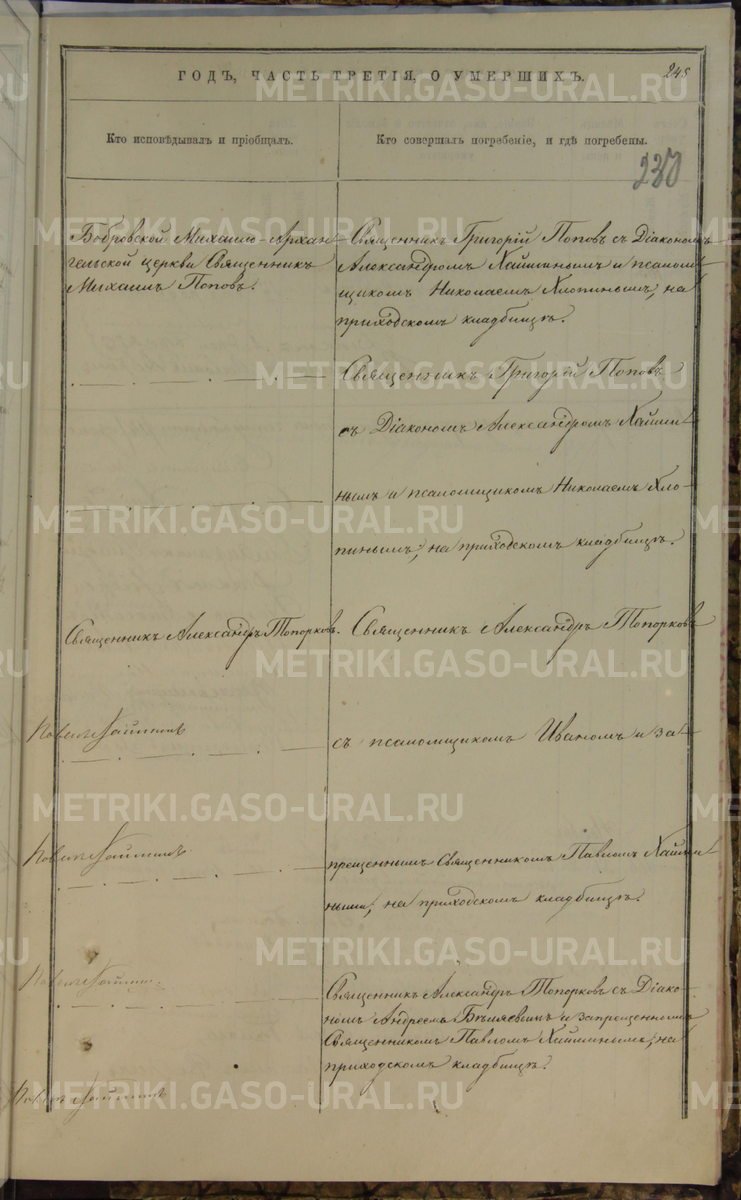 ГОДЪ, ЧАСТЬ ТРЕТІЯ, О УМЕРШИХЪ.
245
Кто исповѣдывалъ и пріобщалъ.
Кто совершалъ погребеніе, и гдѣ погребены.
230
Бобровской Михаило-Архан
гельской церкви Священникъ
Михаилъ Поповъ.
Священникъ Григорій Поповъ съ Діакономъ
Александромъ Хайминымъ и псалом
щикомъ Николаемъ Хлопинымъ, на
приходскомъ кладбищѣ.
Священникъ Григорій Поповъ
съ Діакономъ Александромъ Хайми
нымъ и псаломщикомъ Николаемъ Хло-
пинымъ, на приходскомъ кладбищѣ.
Священникъ Александръ Топорковъ.
Священникъ Александръ Топорковъ
съ псаломщикомъ Иваномъ и за
прещеннымъ Священникомъ Павломъ Хайми
ными, на приходскомъ кладбищѣ.
Священникъ Александръ Топорковъ съ Діако-
номъ Андреемъ Бѣляевымъ и запрещеннымъ
Священникомъ Павломъ Хайминымъ, на
приходскомъ кладбищѣ.
METRIKI.GASO-URAL.RU